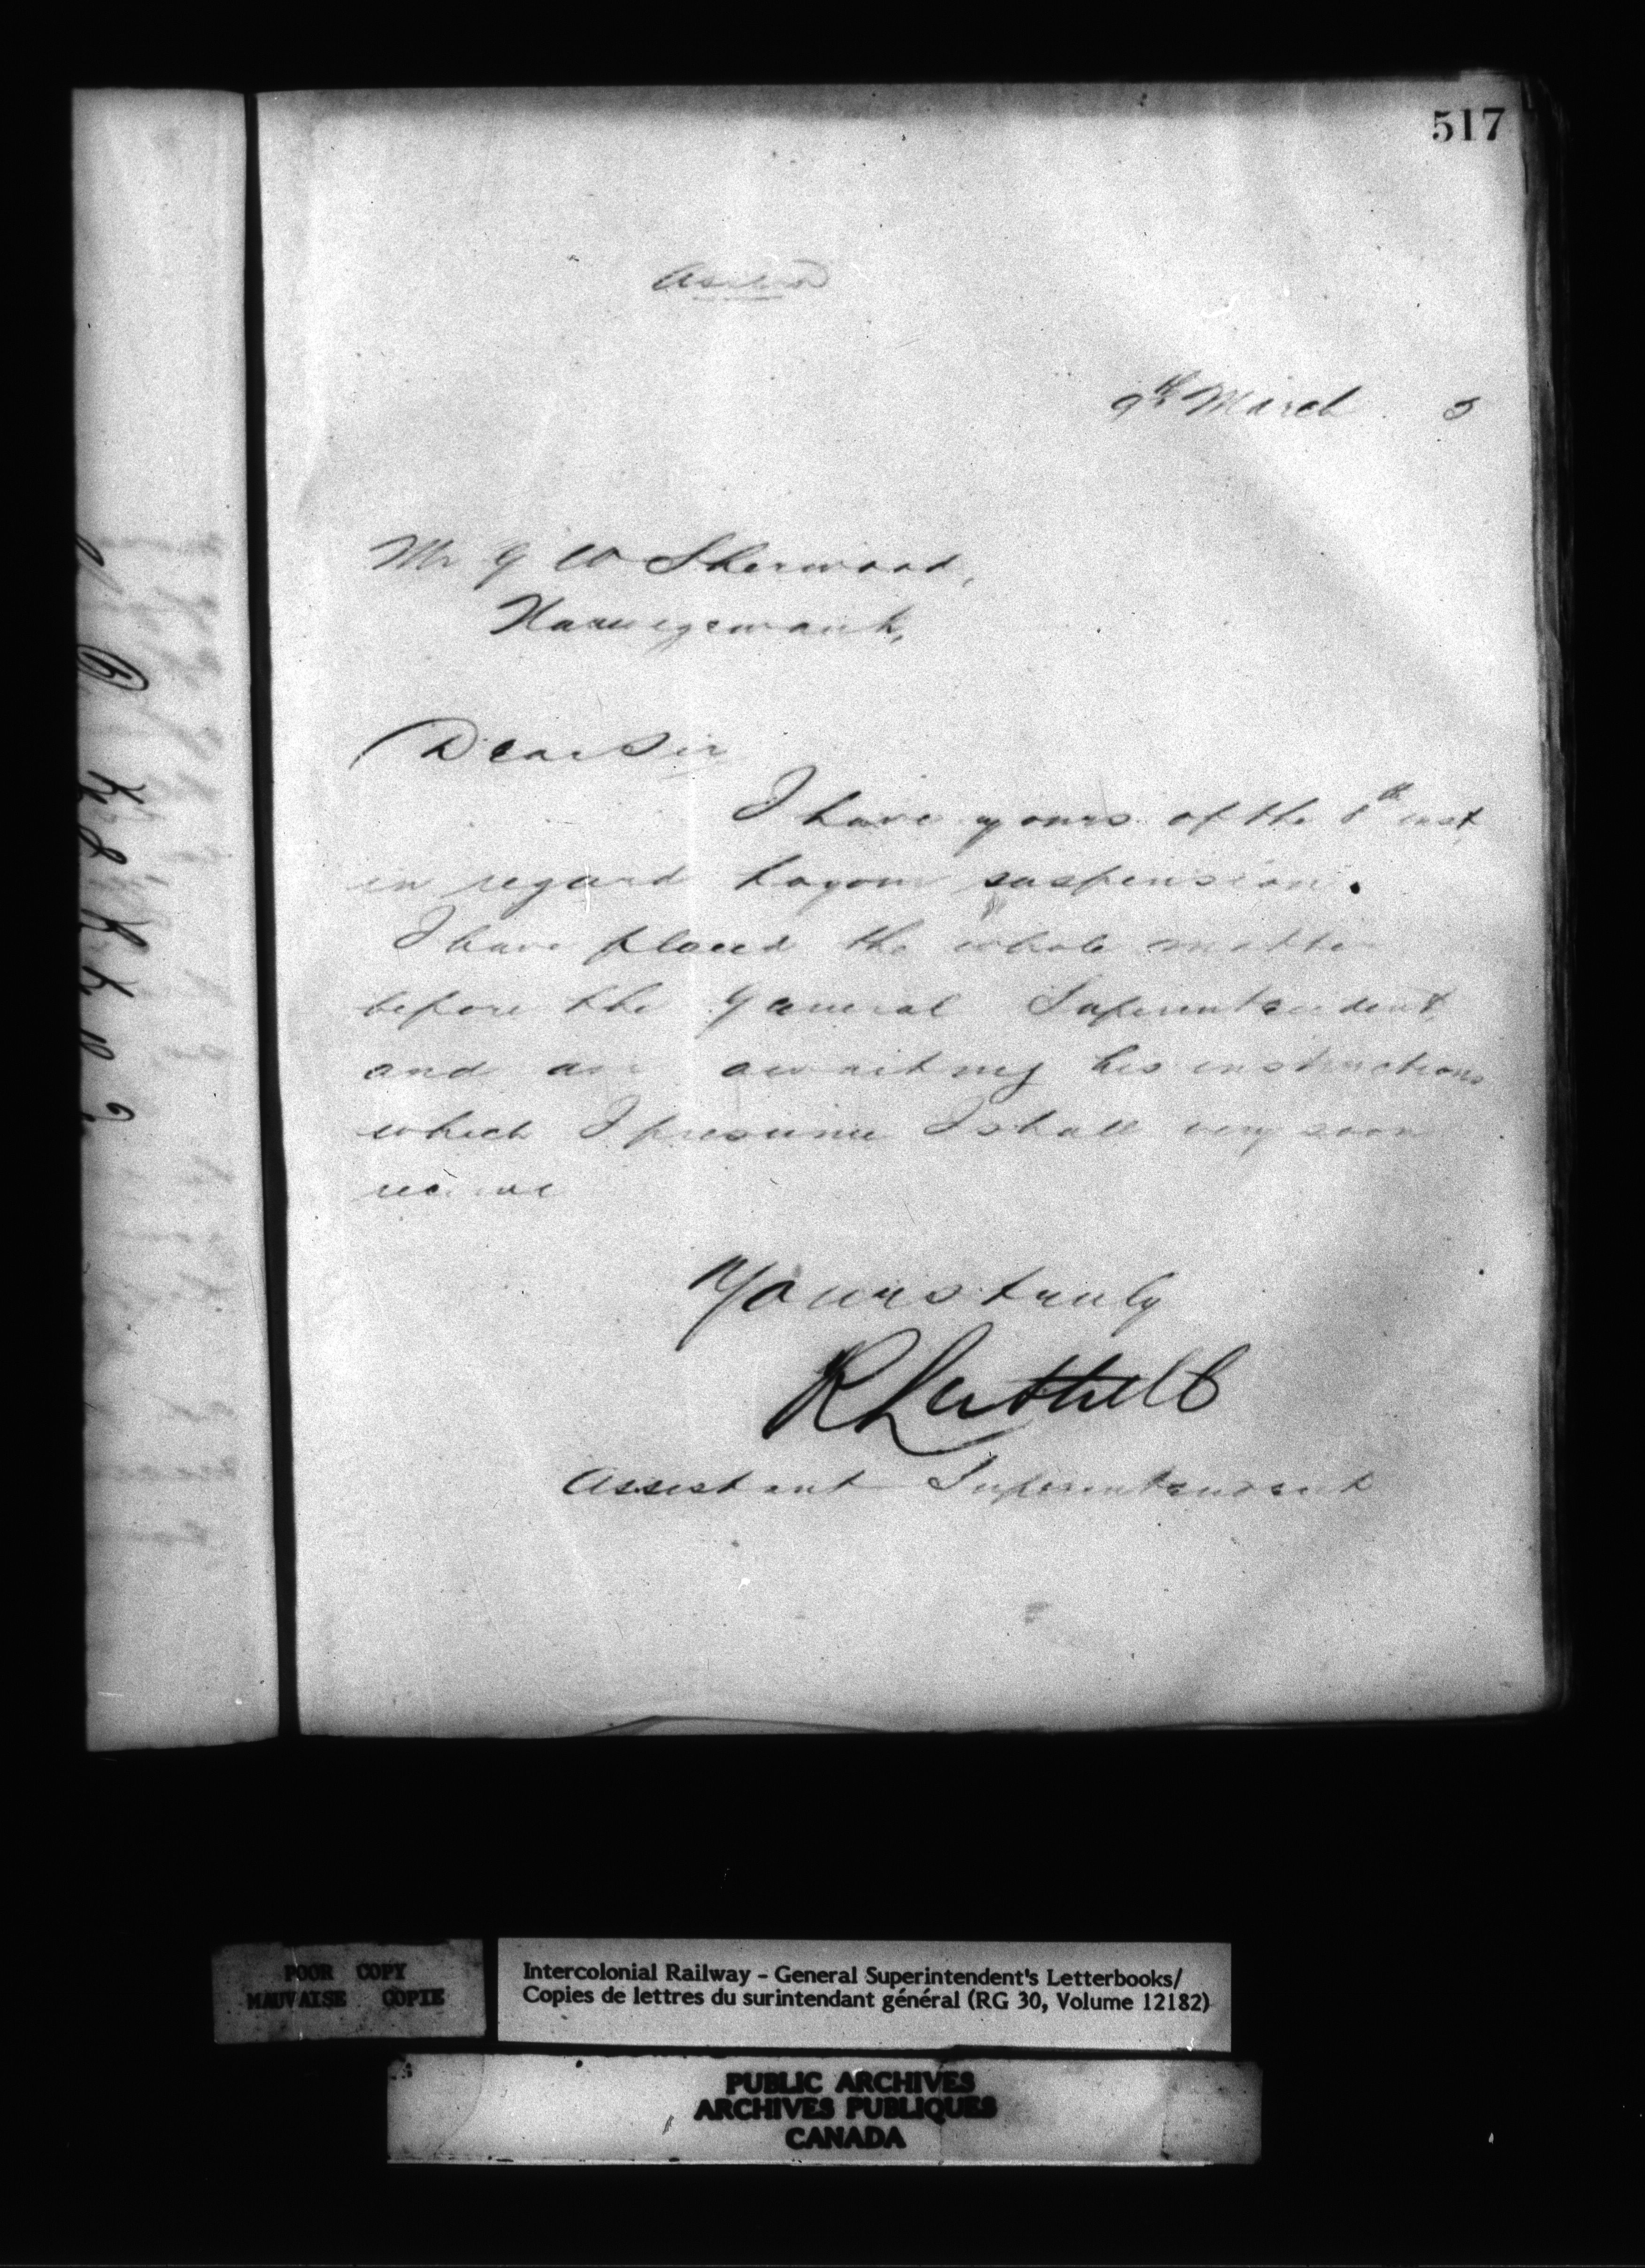 517
9th March 5
Mr G W Sherwood,
Nauwigewauk,
Dear Sir
I have yours of the 6th inst
in regard to your suspension.
I have placed the whole matter
before the General Superintendent
and am awaiting his instructions
which I presume I shall very soon
receive
Yours truly
R Luttrell
Assistant Superintendent
POOR COPY
MAUVAISE COPIE
Intercolonial Railway - General Superintendent's Letterbooks/
Copies de lettres du surintendant général (RG 30, Volume 12182)
PUBLIC ARCHIVES
ARCHIVES PUBLIQUES
CANADA